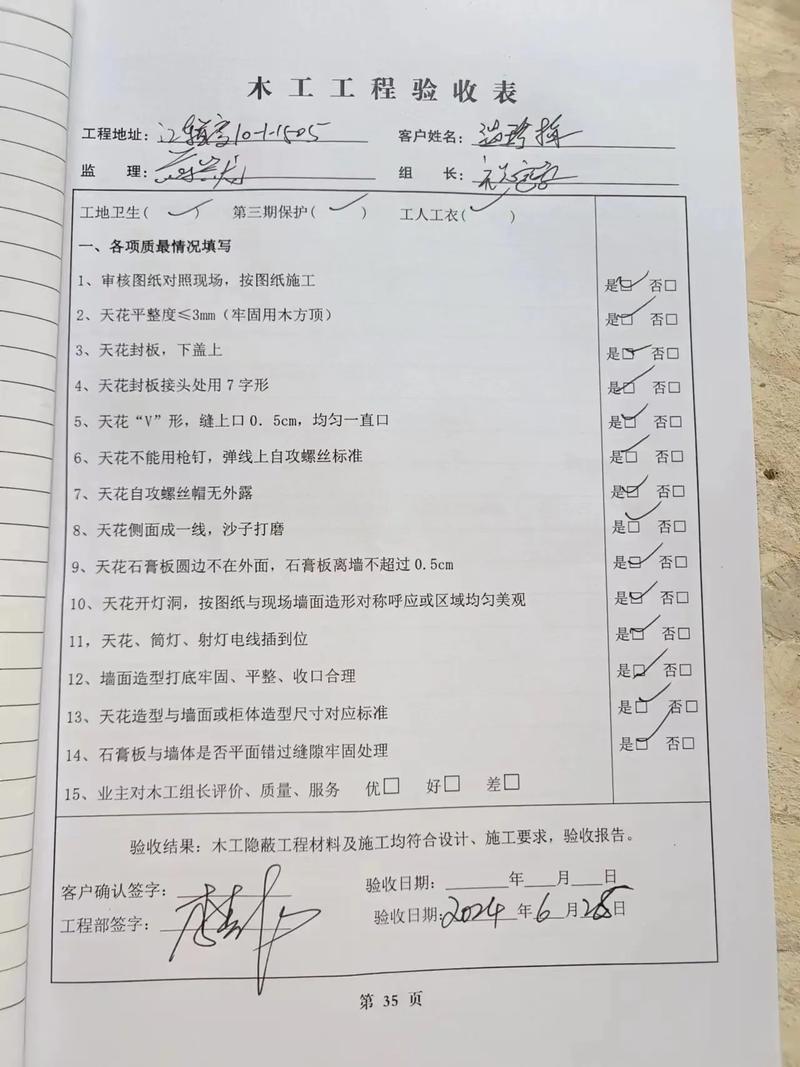 木工工程验收表
工程地址: 10-1-1505 客户姓名:
监 理: 组 长:
工地卫生(✓) 第三期保护(✓) 工人工衣(✓)
一、各项质最情况填写
1、审核图纸对照现场，按图纸施工 是☑ 否□
2、天花平整度≤3mm（牢固用木方顶） 是☑ 否□
3、天花封板，下盖上 是☑ 否□
4、天花封板接头处用7字形 是☑ 否□
5、天花“V”形，缝上口0.5cm，均匀一直口 是☑ 否□
6、天花不能用枪钉，弹线上自攻螺丝标准 是☑ 否□
7、天花自攻螺丝帽无外露 是☑ 否□
8、天花侧面成一线，沙子打磨 是☑ 否□
9、天花石膏板圆边不在外面，石膏板离墙不超过0.5cm 是☑ 否□
10、天花开灯洞，按图纸与现场墙面造形对称呼应或区域均匀美观 是☑ 否□
11，天花、筒灯、射灯电线插到位 是☑ 否□
12、墙面造型打底牢固、平整、收口合理 是☑ 否□
13、天花造型与墙面或柜体造型尺寸对应标准 是☑ 否□
14、石膏板与墙体是否平面错过缝隙牢固处理 是☑ 否□
15、业主对木工组长评价、质量、服务 优□ 好□ 差□
验收结果：木工隐蔽工程材料及施工均符合设计、施工要求，验收报告。
客户确认签字: 验收日期: 年 月 日
工程部签字: 验收日期: 2024年6月28日
第 35 页